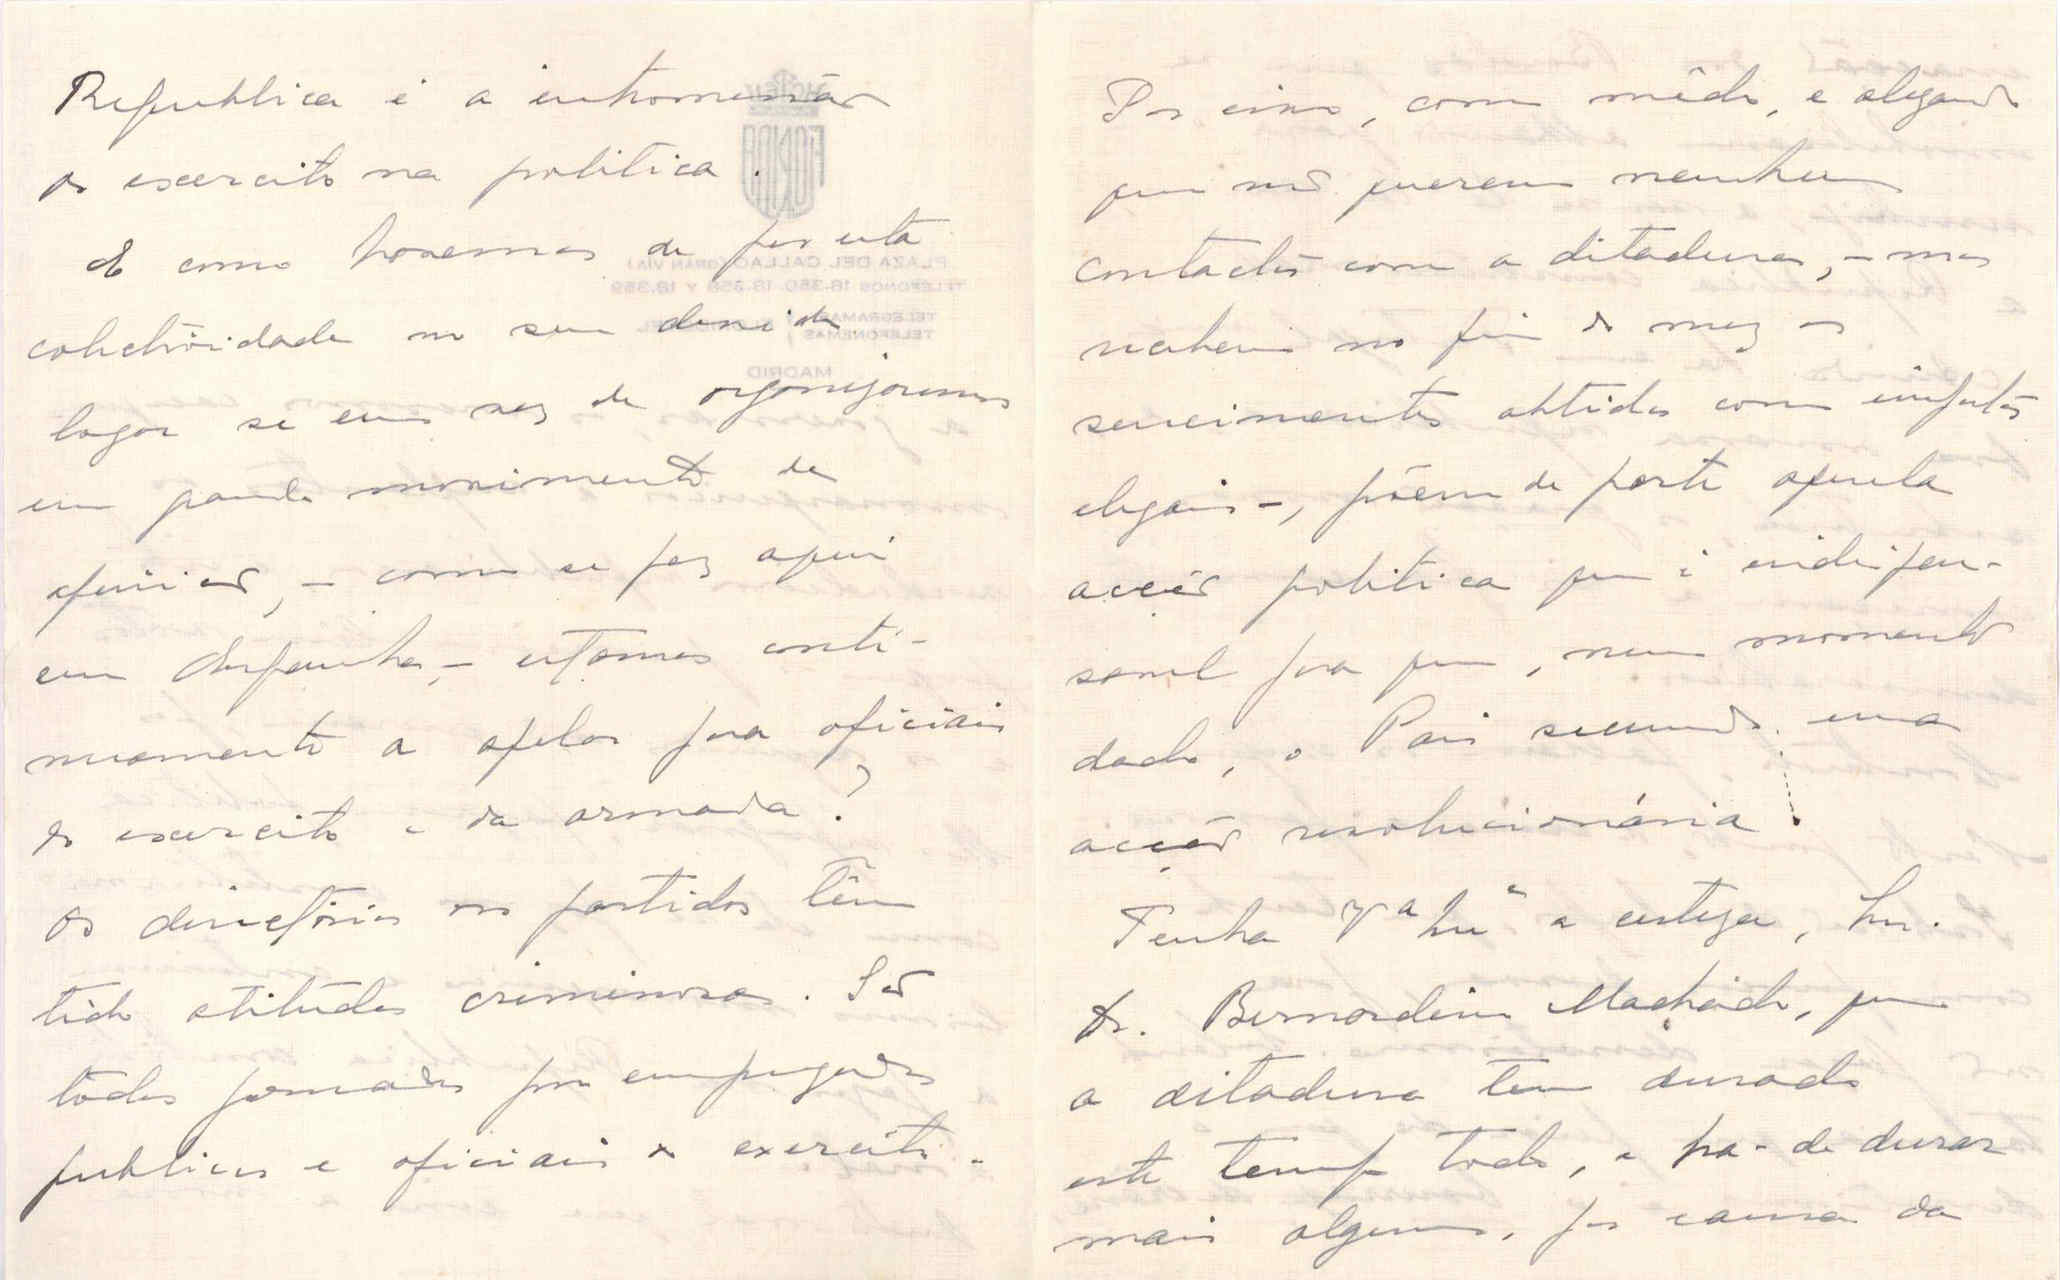 Republica é a intromissão
do exercito na politica.
E como havemos de pôr esta
colectividade no seu devido
logar se em vez de organizarmos
um grande movimento de
opinião, – como se fez aqui
em Espanha, – estamos conti-
nuamente a apelar para oficiais
do exercito e da armada?
Os directórios dos partidos têm
tido atitudes criminosas. São
todos formados por empregados
publicos e oficiais do exercito.
Por isso, com mêdo, e alegando
que não querem nenhum
contacto com a ditadura, – mas
recebem no fim do mez os
vencimentos obtidos com impostos
ilegais –, põem de parte aquela
acção politica que é indispen-
savel para que, num momento
dado, o Pais secunde uma
acção revolucionária.
Tenha V.ª Ex.ª a certeza, Snr.
Dr. Bernardino Machado, que
a ditadura tem durado
este tempo todo, e ha-de durar
mais algum, por causa da
FONDA
PLAZA DEL CALLAO (GRAN VÍA)
TELEFONOS 18.350, 18.358 Y 18.359
TELEGRAMAS
TELEFONEMAS
MADRID